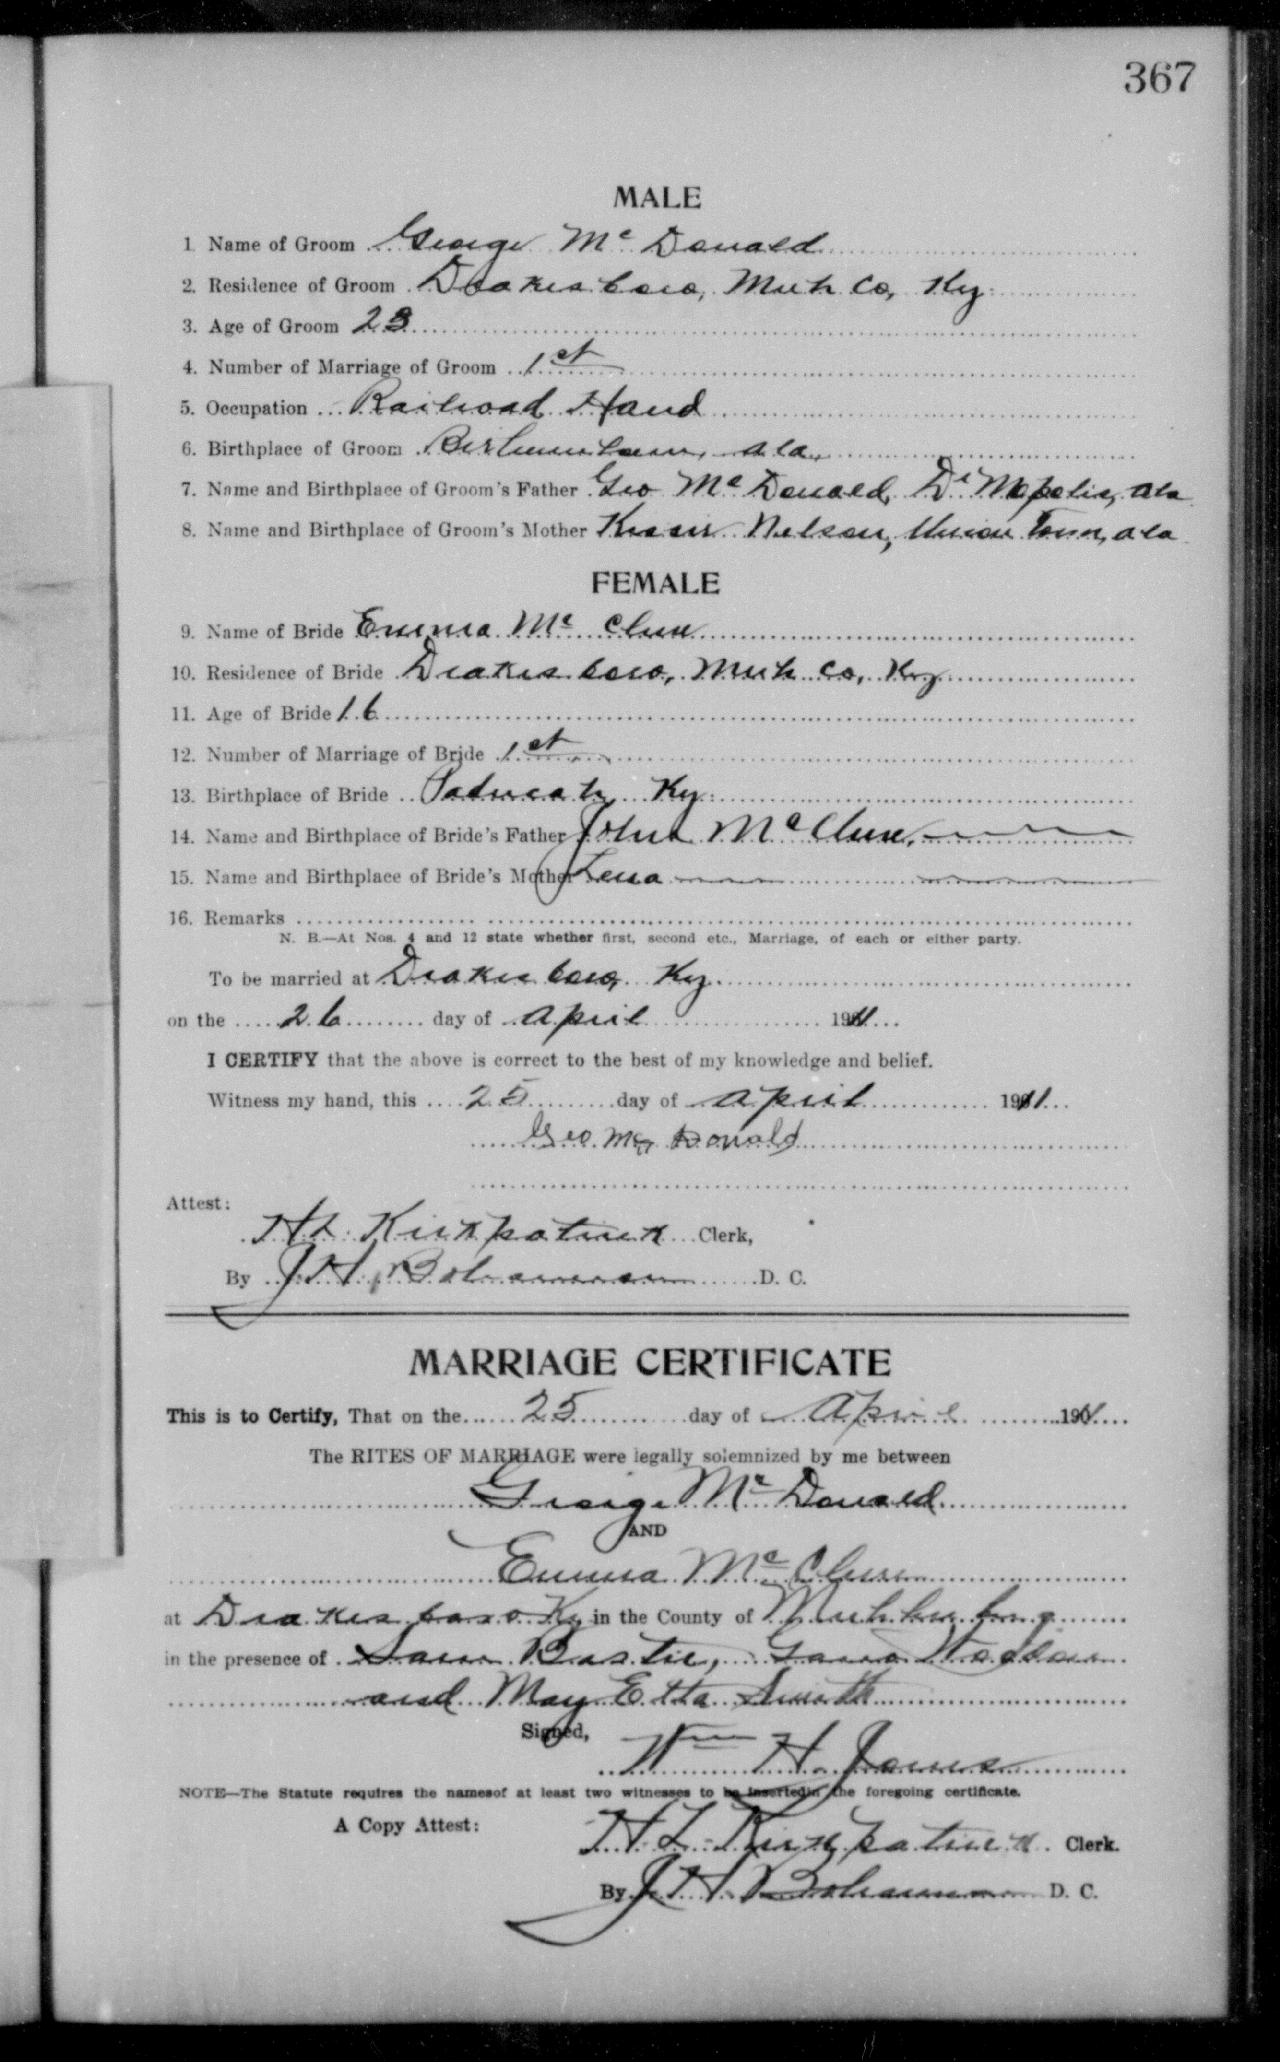 367
MALE
1. Name of Groom George Mc Donald
2. Residence of Groom Drakesboro, Muh Co, Ky.
3. Age of Groom 23
4. Number of Marriage of Groom 1st
5. Occupation Railroad Hand
6. Birthplace of Groom Birhmnham, ala.
7. Name and Birthplace of Groom's Father Geo Mc Donald, De Mopolis, ala
8. Name and Birthplace of Groom's Mother Nelson, Union Town, ala
FEMALE
9. Name of Bride Emma Mc Clure
10. Residence of Bride Drakesboro, Muh Co, Ky
11. Age of Bride 16
12. Number of Marriage of Bride 1st
13. Birthplace of Bride Paducah, Ky.
14. Name and Birthplace of Bride's Father John McClure,
15. Name and Birthplace of Bride's Mother Lena
16. Remarks
N. B.—At Nos. 4 and 12 state whether first, second etc., Marriage, of each or either party.
To be married at Drakesboro, Ky.
on the 26 day of April 1911
I CERTIFY that the above is correct to the best of my knowledge and belief.
Witness my hand, this 25 day of April 1911
Geo Mc Donald
Attest:
H L Kirkpatrick Clerk,
By J H Bohannon D. C.
MARRIAGE CERTIFICATE
This is to Certify, That on the 25 day of April 191
The RITES OF MARRIAGE were legally solemnized by me between
George Mc Donald
AND
Emma Mc Clure
at Drakesboro Ky in the County of Muhlenberg
in the presence of Sam
and May Etta Smith
Signed,
Wm H. Jones
NOTE—The Statute requires the namesof at least two witnesses to be insertedin the foregoing certificate.
A Copy Attest:
H. L. Kirkpatrick Clerk.
By J H Bohannon D. C.